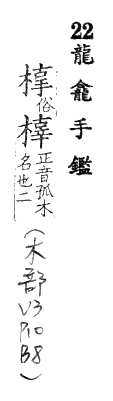 22龍龕手鑑
俗正音孤木
名也二
(木部
V3
P10
B8)